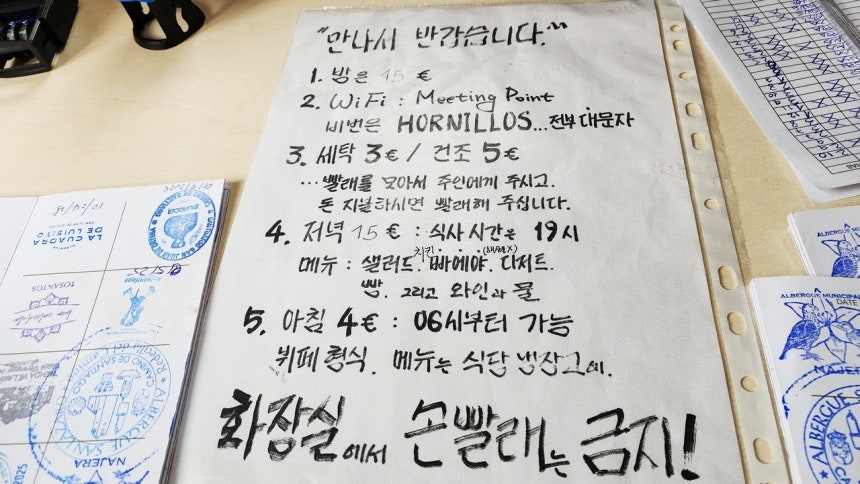 "만나서 반갑습니다."
1. 방은 15 €
2. WiFi : Meeting Point
비번은 HORNILLOS... 전부 대문자
3. 세탁 3€ / 건조 5€
... 빨래를 모아서 주인에게 주시고.
돈 지불하시면 빨래해 주십니다.
4. 저녁 15 € : 식사 시간은 19시
메뉴 : 샐러드. 치킨 빠에야. 디저트.
빵. 그리고 와인과 물
5. 아침 4€ : 06시부터 가능
뷔페 형식. 메뉴는 식당 냉장고에.
화장실에서 손빨래는 금지!
LA CUADRA
DE LUISITO
TOSANTOS
NAJERA
ALBERGUE MUNICIPAL
DATE
NAJER
ALBERGUE